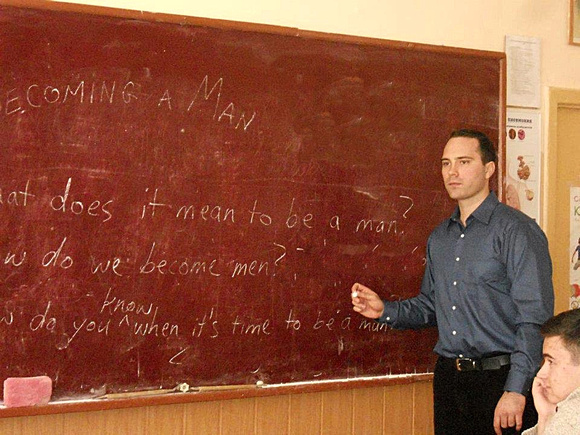 ECOMING A MAN
at does it mean to be a man?
w do we become men?
w do you know when it's time to be a man